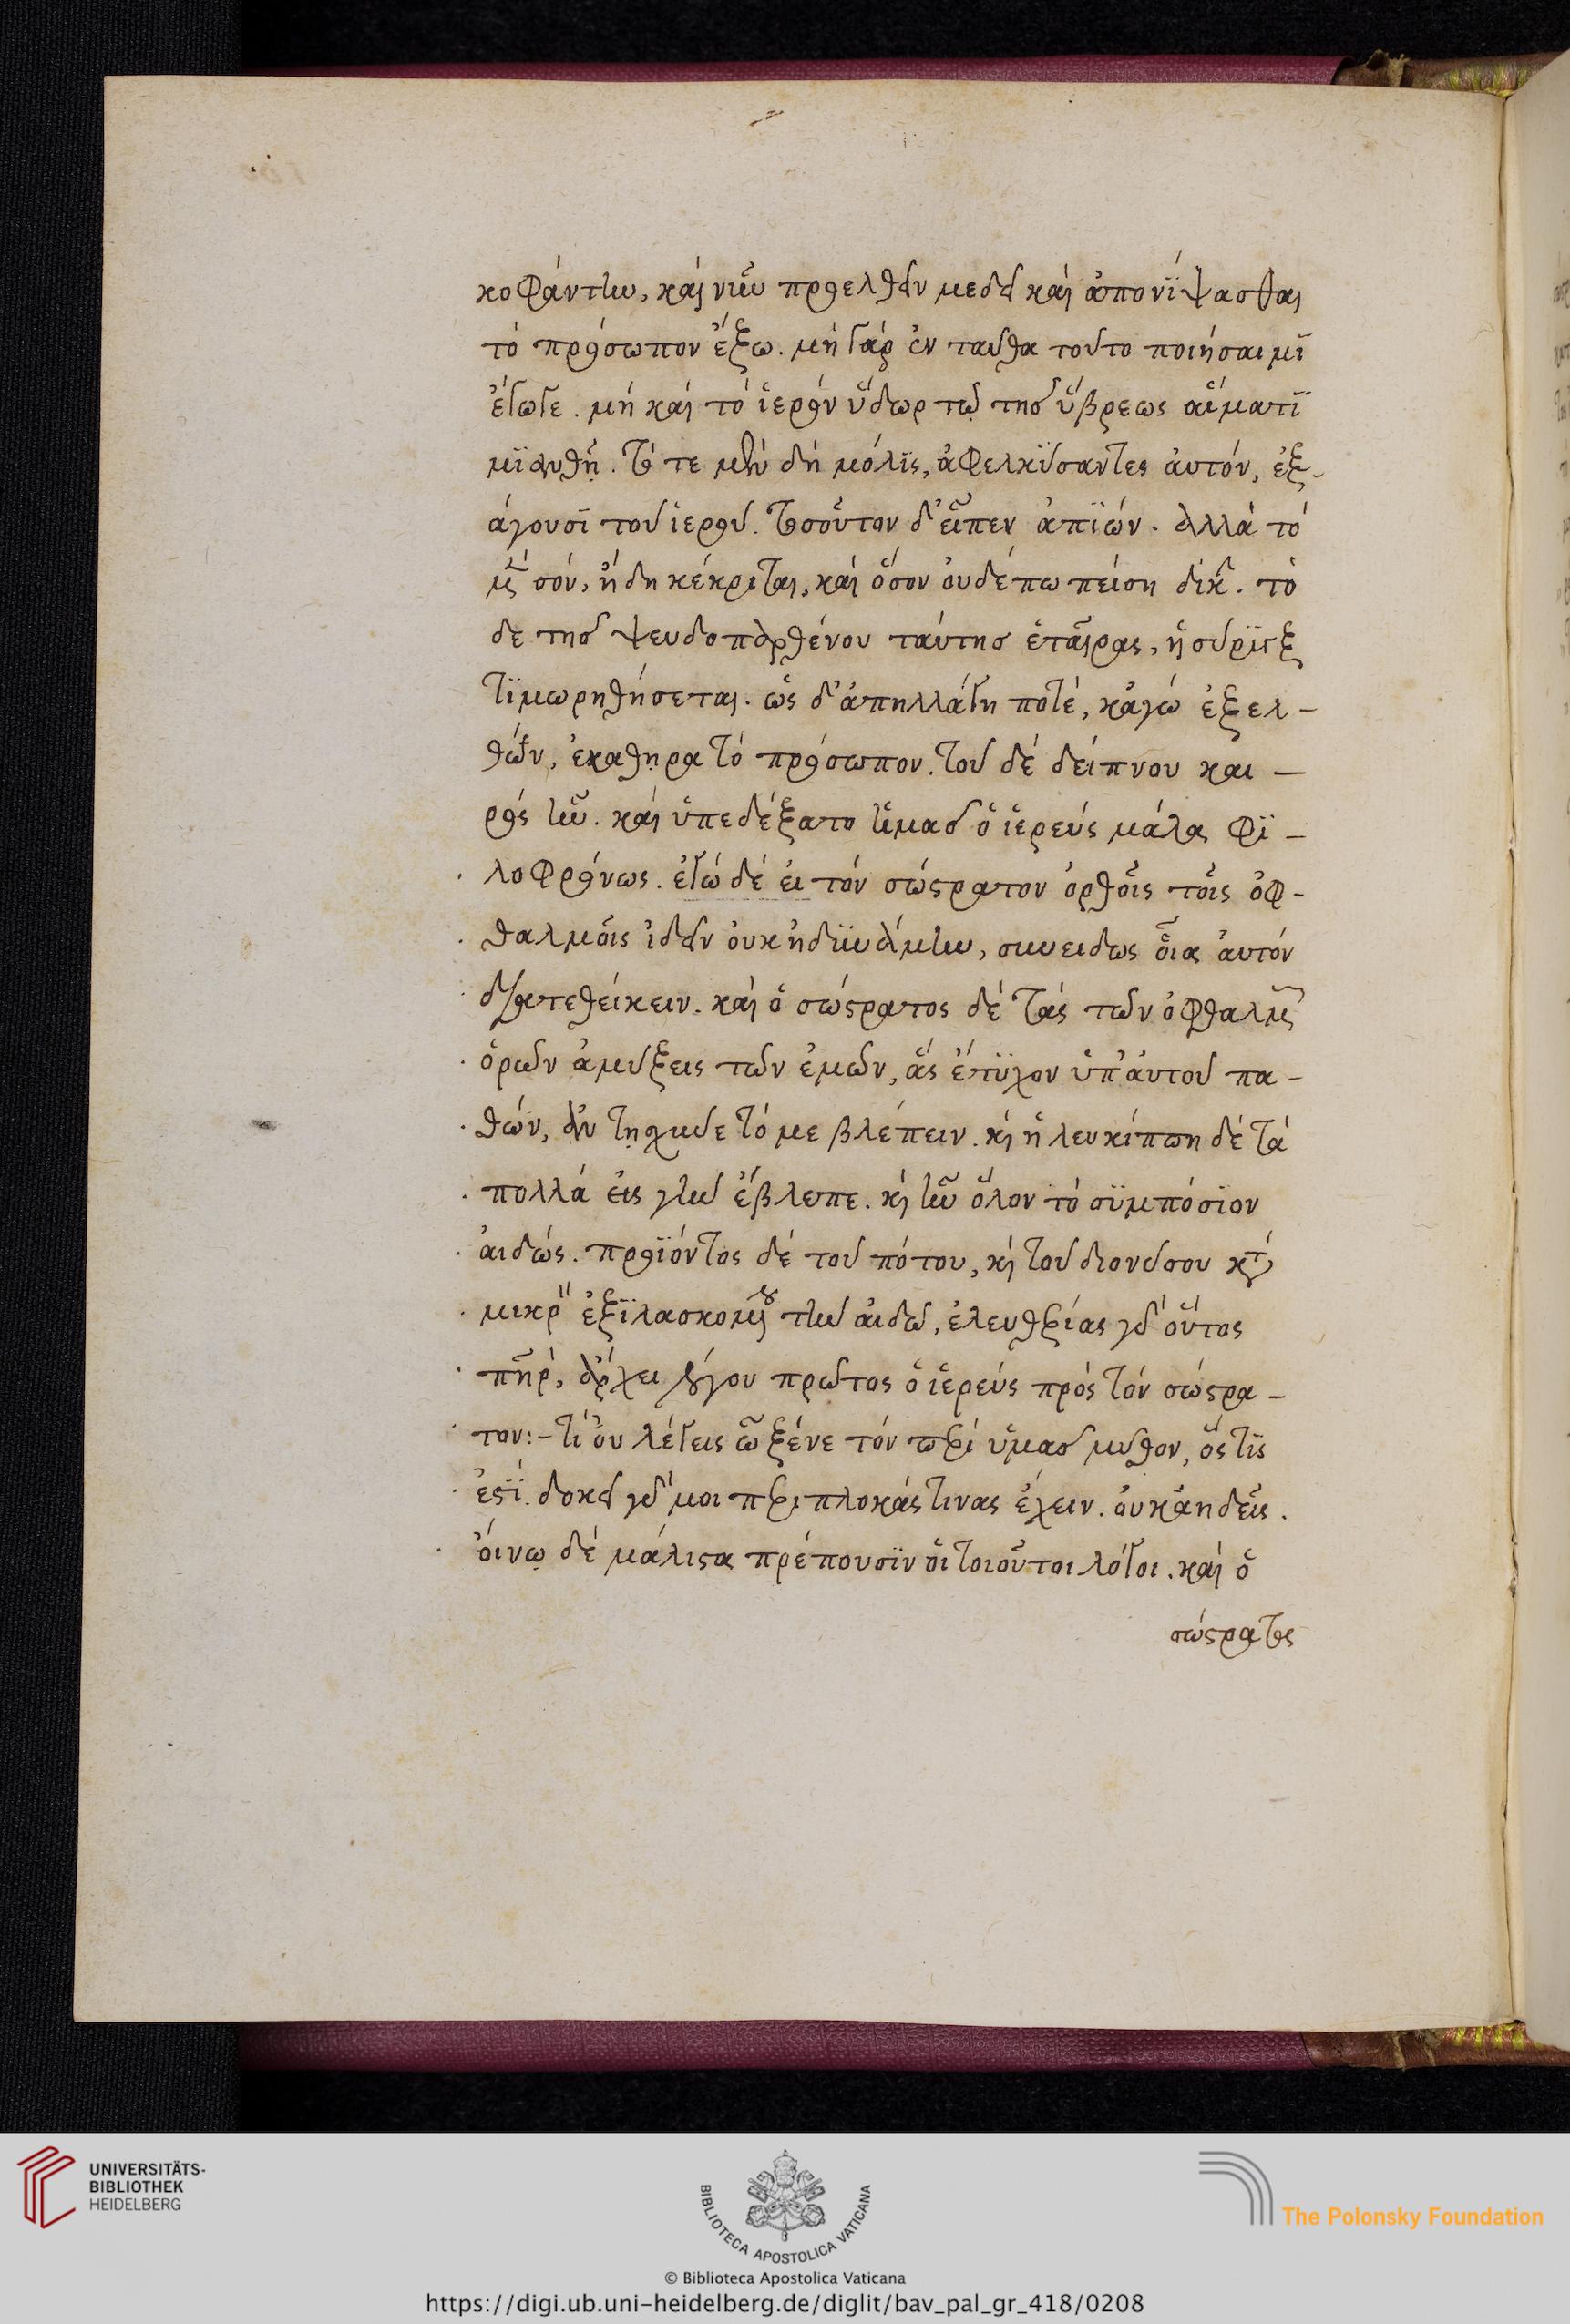 κοφάντην, καὶ νῦν προελθεῖν με δεῖ καὶ ἀπονίψασθαι
τὸ πρόσωπον ἔξω. μὴ γὰρ ἐνταῦθα τοῦτο ποιήσαιμι
ἔγωγε. μὴ καὶ τὸ ἱερὸν ὕδωρ τῷ τῆς ὕβρεως αἵματι
μιανθῇ. τότε μὲν δὴ μόλις, ἀφελκύσαντες αὐτόν, ἐξ-
άγουσι τοῦ ἱεροῦ. τοσοῦτον δ' εἶπεν ἀπιών. ἀλλὰ τὸ
μὲν σόν, ἤδη κέκριται, καὶ ὅσον οὐδέπω πείση δίκην. τὸ
δὲ τῆς ψευδοπαρθένου ταύτης ἑταίρας, ἡ σύριγξ
τιμωρηθήσεται. ὡς δ' ἀπηλλάγη ποτέ, κἀγὼ ἐξελ-
θών, ἐκάθηρα τὸ πρόσωπον. τοῦ δὲ δείπνου και-
ρὸς ἦν. καὶ ὑπεδέξατο ἡμᾶς ὁ ἱερεὺς μάλα φι-
λοφρόνως. ἐγὼ δὲ εἰ τὸν σώστρατον ὀρθοῖς τοῖς ὀφ-
θαλμοῖς ἰδεῖν οὐκ ἠδυνάμην, συνειδὼς οἷα αὐτὸν
διατεθείκειν. καὶ ὁ σώστρατος δὲ τὰς τῶν ὀφθαλμῶν
ὁρῶν ἀμύξεις τῶν ἐμῶν, ἃς ἔτυχον ὑπ' αὐτοῦ πα-
θών, ἀντῃσχύνετό με βλέπειν. καὶ ἡ λευκίππη δὲ τὰ
πολλὰ εἰς γῆν ἔβλεπε. καὶ ἦν ὅλον τὸ συμπόσιον
αἰδώς. προϊόντος δὲ τοῦ πότου, καὶ τοῦ διονύσου κατὰ
μικρὸν ἐξιλασκομένου τὴν αἰδῶ, ἐλευθερίας γὰρ οὗτος
πατήρ, ἄρχει λόγου πρῶτος ὁ ἱερεὺς πρὸς τὸν σώστρα-
τον:- τί οὐ λέγεις ὦ ξένε τὸν περὶ ὑμᾶς μῦθον, ὅστις
ἐστί. δοκεῖ γάρ μοι περιπλοκάς τινας ἔχειν. οὐκ ἀηδεῖς.
οἴνῳ δὲ μάλιστα πρέπουσιν οἱ τοιοῦτοι λόγοι. καὶ ὁ
σώστρατος
UNIVERSITÄTS-
BIBLIOTHEK
HEIDELBERG
BIBLIOTECA APOSTOLICA VATICANA
The Polonsky Foundation
© Biblioteca Apostolica Vaticana
https://digi.ub.uni-heidelberg.de/diglit/bav_pal_gr_418/0208